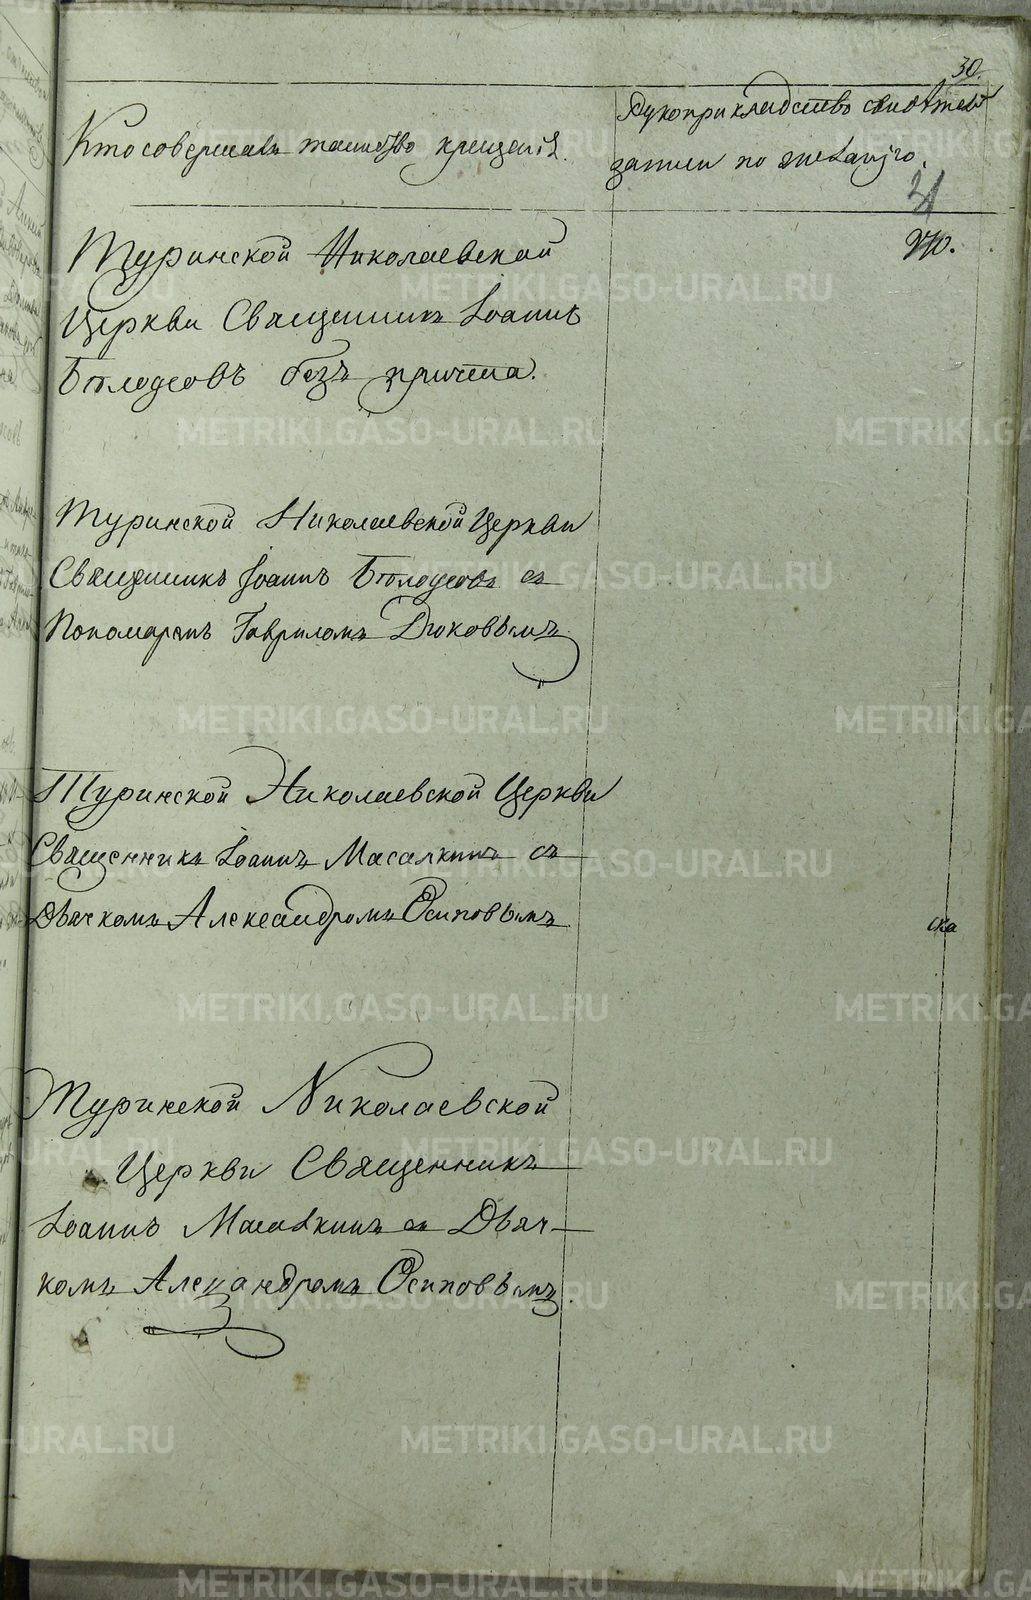 30.
Кто совершалъ таинство крещенія.
Рукоприкладство свидѣтел.
записи по желанію.
21
970.
Туринской Николаевской
Церкви Священникъ Іоаннъ
Бѣлодеовъ безъ причта.
Туринской Николаевской Церкви
Священникъ Іоаннъ Бѣлодеовъ съ
Пономаремъ Гавриломъ Дюковымъ
Туринской Николаевской Церкви
Священникъ Іоаннъ Масалкинъ съ
Дьячкомъ Александромъ Осиповымъ.
ска
Туринской Николаевской
Церкви Священникъ
Іоаннъ Масалкинъ съ Дьяч-
комъ Александромъ Осиповымъ.
METRIKI.GASO-URAL.RU